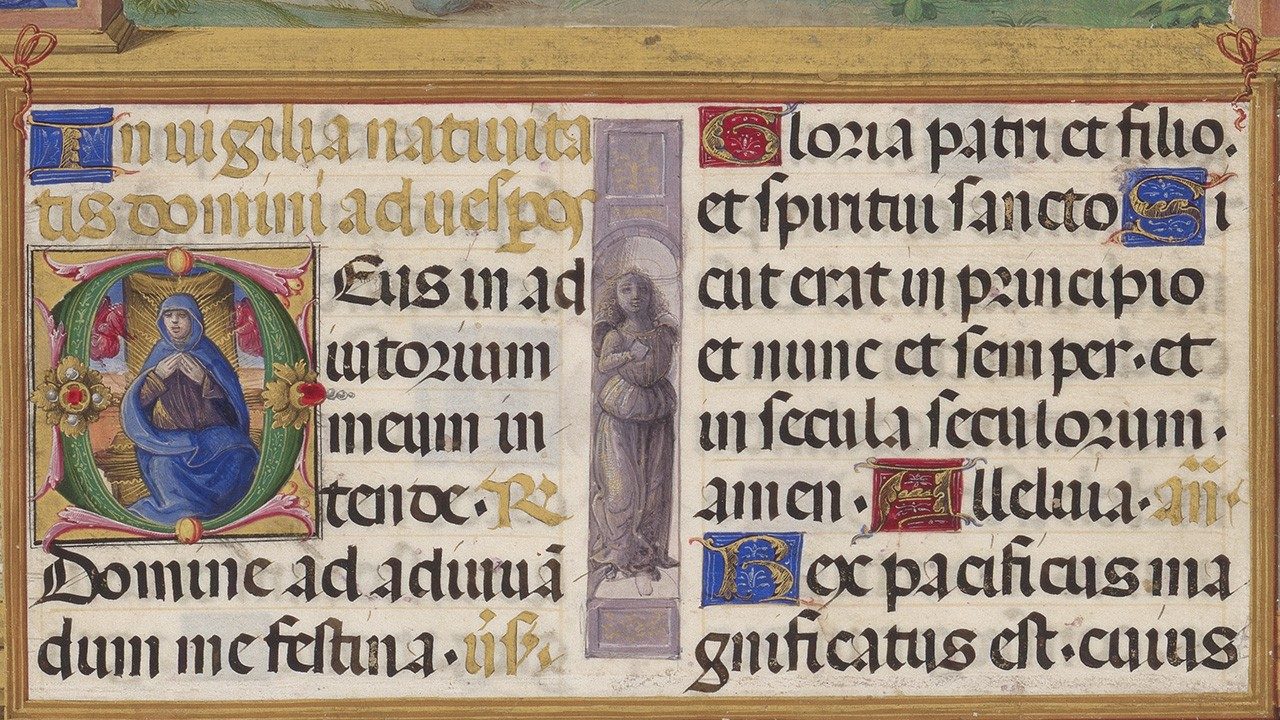 In uigilia natiuita
tis domini ad uesp̱os
Deus in ad
iutorium
meum in
tende · R
Domine ad adiuuā
dum me festina · v̄s.
Gloria patri et filio.
et spiritui sancto Si
cut erat in principio
et nunc et semper · et
in secula seculorum ·
amen · Alleluia · añ
Rex pacificus ma
gnificatus est · cuius